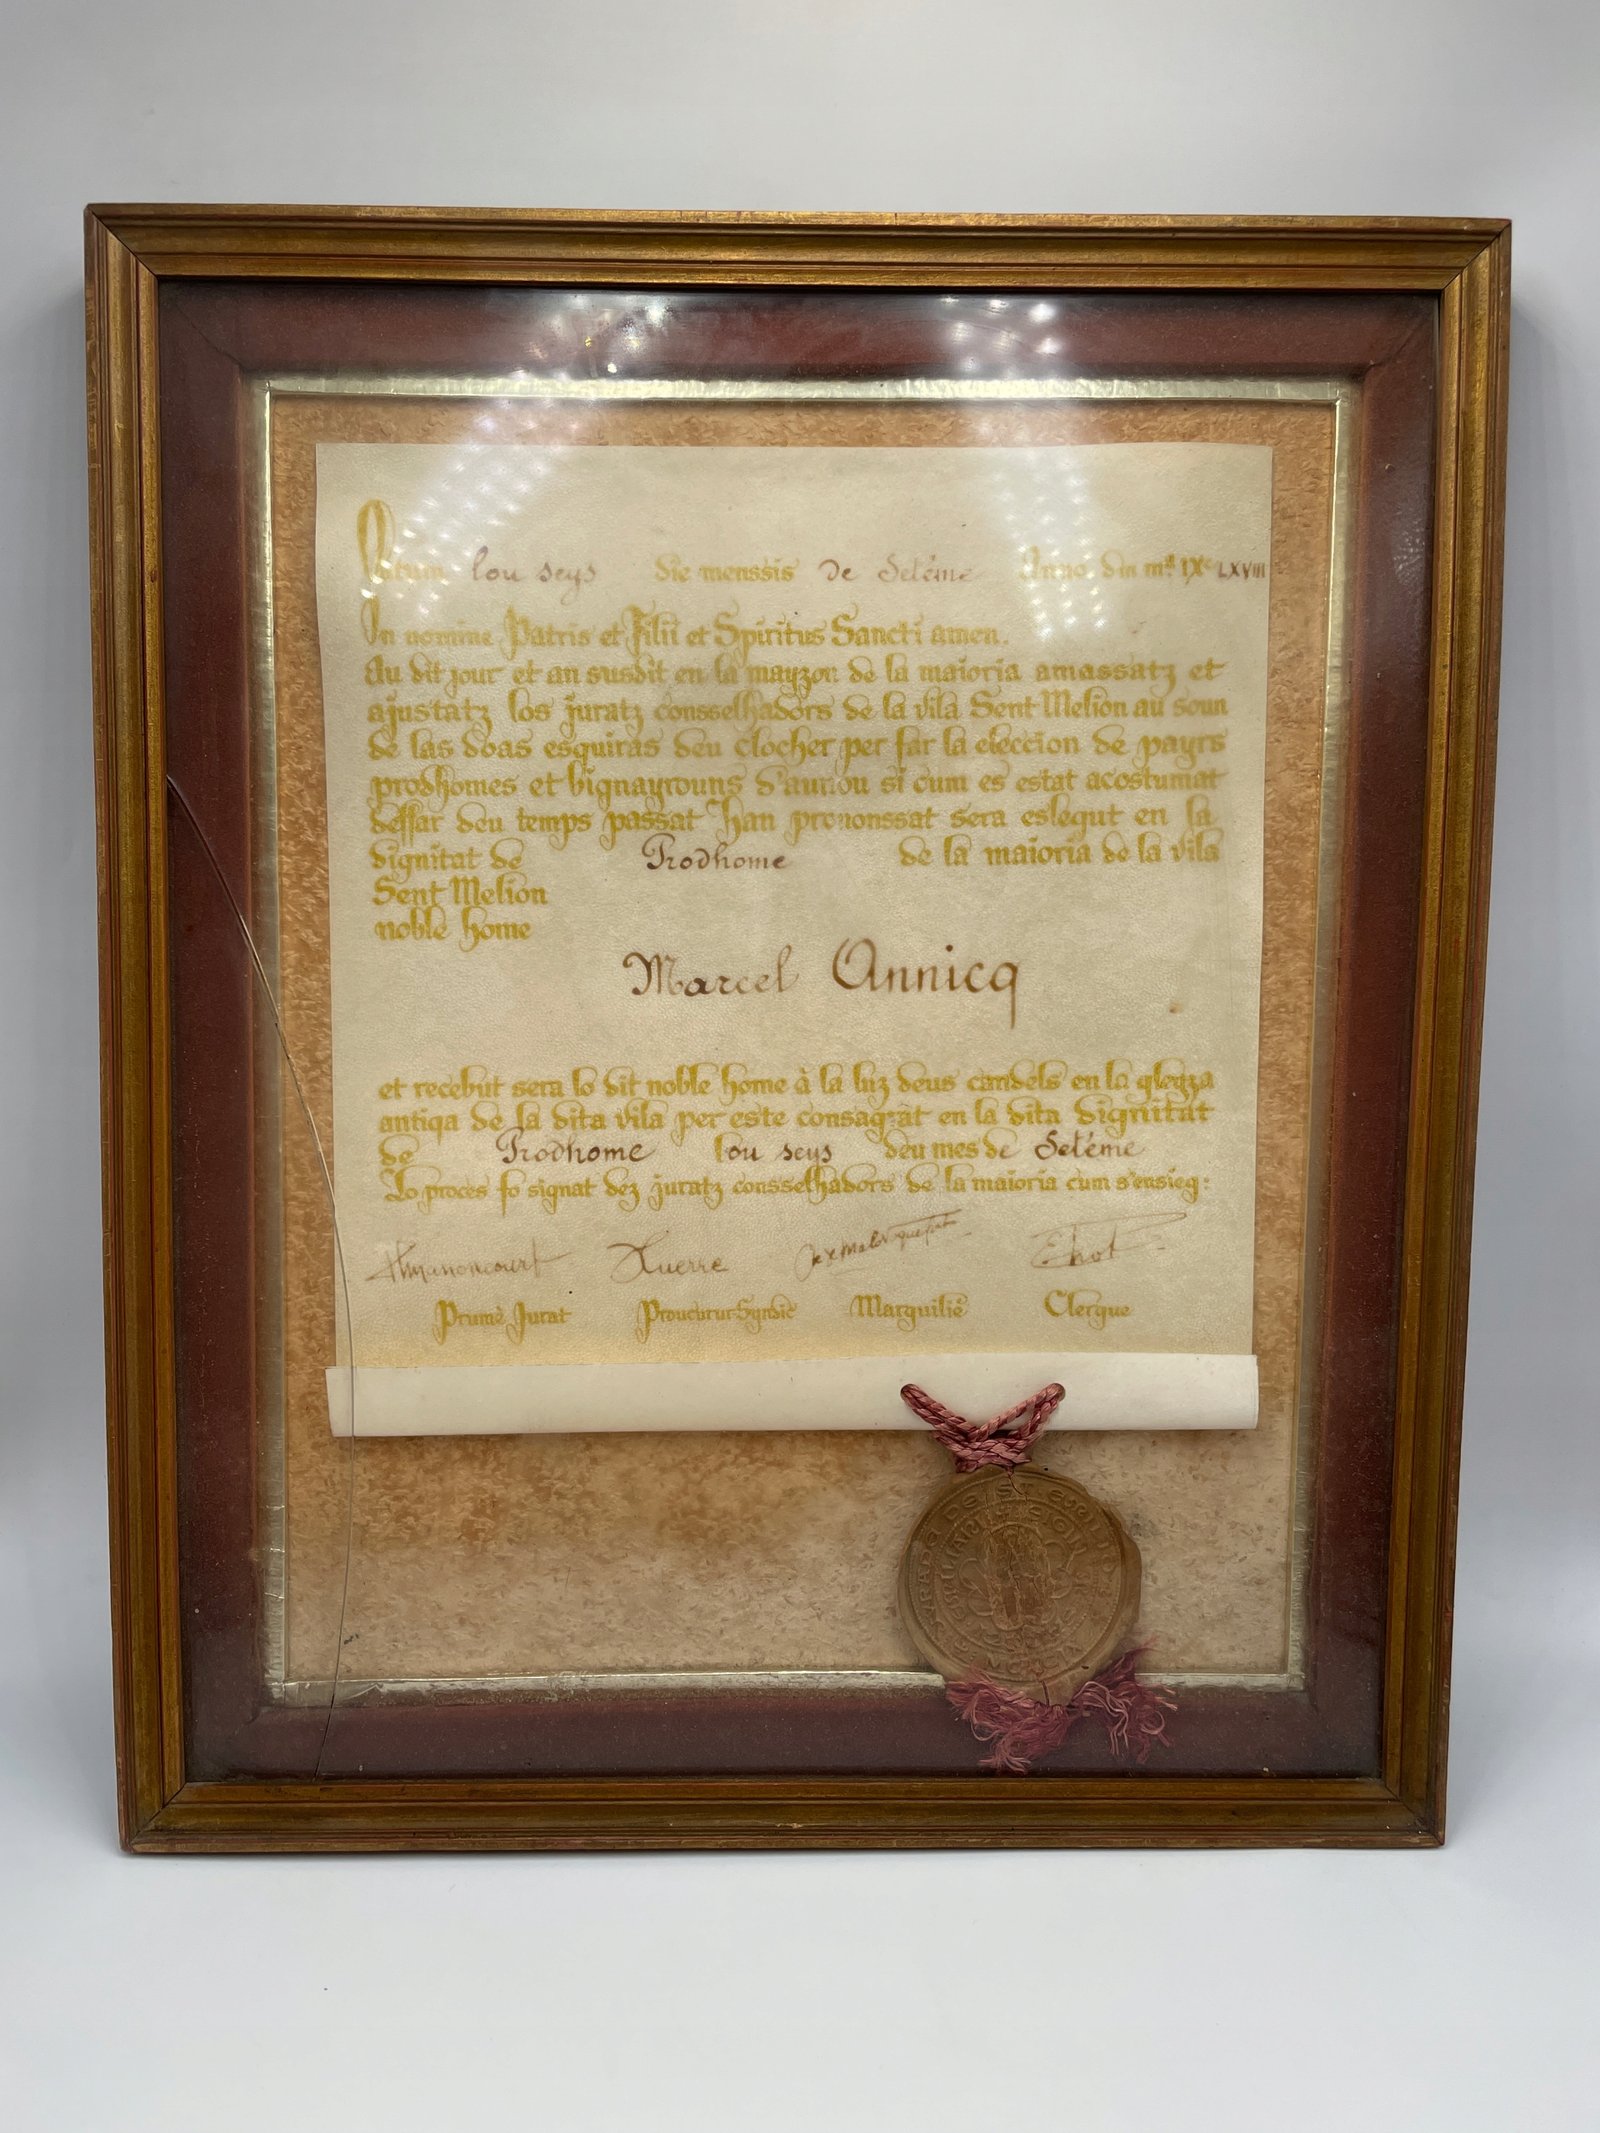 Datum lou seys die menssis de Setéme Anno dm m^ll IX^c LXVIII
In nomine Patris et Filii et Spiritus Sancti amen.
Au dit jour et an susdit en la mayzon de la maioria amassatz et
ajustatz los juratz consselhadors de la vila Sent Melion au soun
de las doas esquiras deu clocher per far la eleccion de payrs
prodhomes et bignayrouns d'aunou si cum es estat acostumat
deffar deu temps passat Han prononssat sera eslequt en la
dignitat de Prodhome de la maioria de la vila
Sent Melion
noble home
Marcel Annicq
et recebut sera lo dit noble home à la luz deus candels en la gleyza
antiqa de la dita vila per este consagrat en la dita dignitat
de Prodhome lou seys deu mes de Setéme
Lo proces fo signat dez juratz consselhadors de la maioria cum s'ensieg:
Querre
Prumè Jurat Proucurur Syndic Marguiliè Clergue